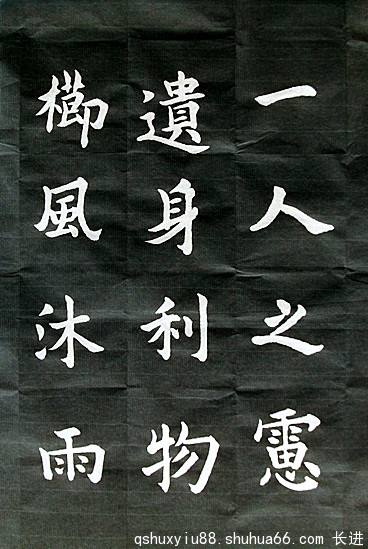 一人之慮
遺身利物
櫛風沐雨
qshuxyiu88.shuhua66.com 长进